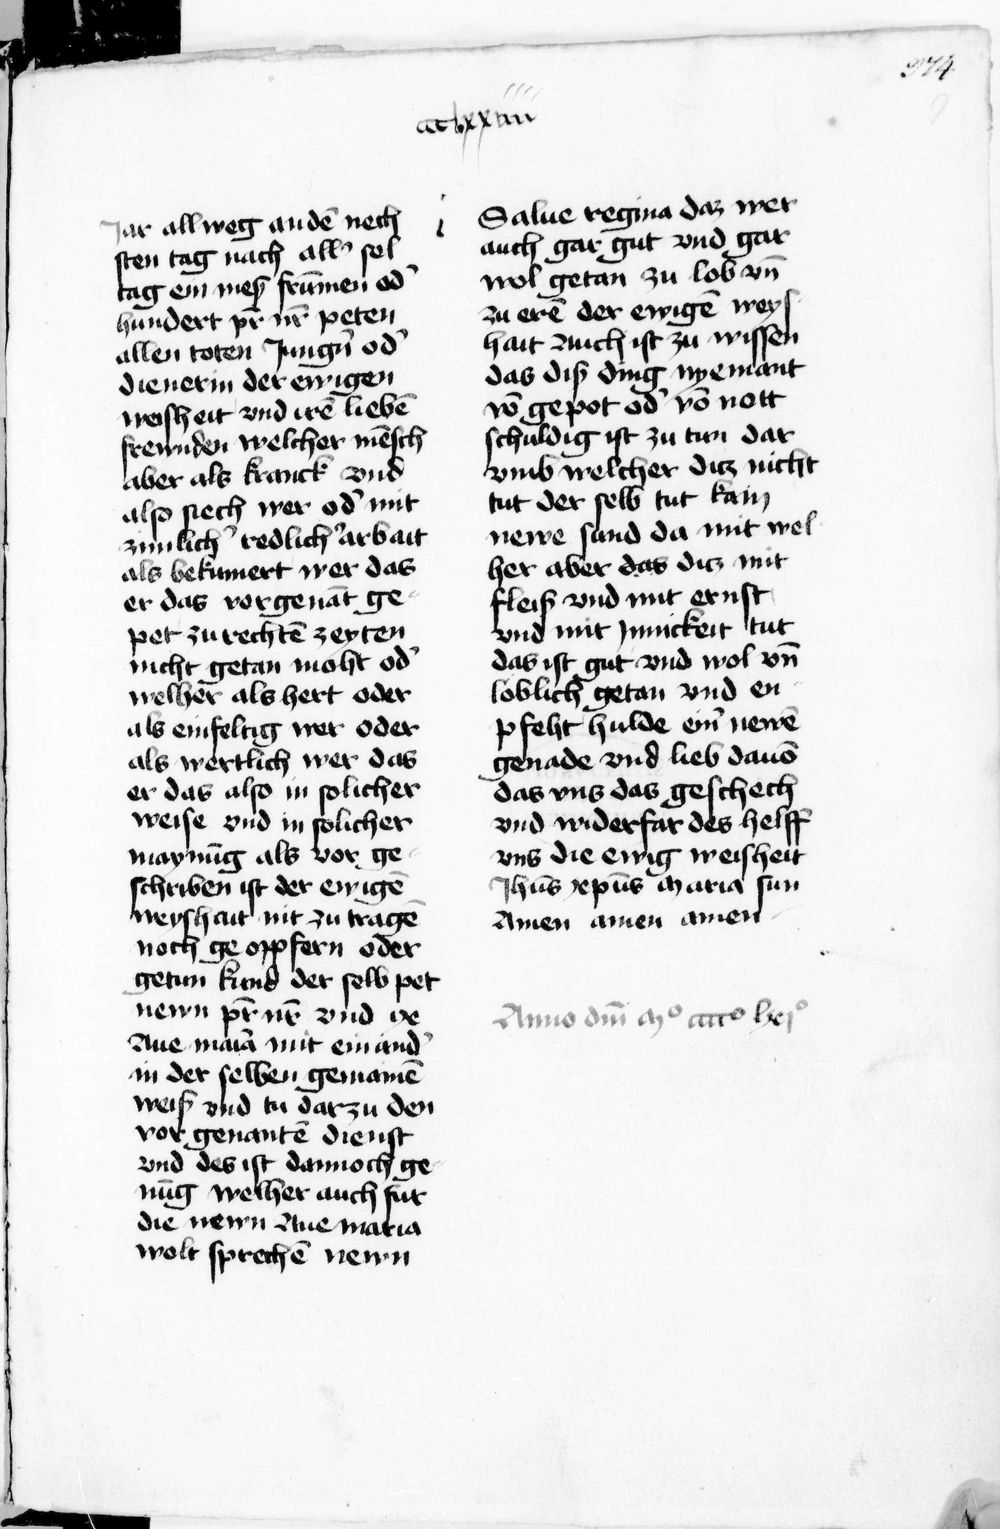 274
cclxxiiii
Jar allweg an dē nech
sten tag nach all' sel
tag ein meß frūmen od'
hundert pr̄ nr̄ peten
allen toten Jungn̄ od'
dienerin der ewigen
weisheit vnd irē liebē
frewnden welcher mēsch
aber als kranck vnd
also siech wer od' mit
zimlich' redlich' arbait
als bekumert wer das
er das vorgenāt ge-
pet zu rechtē zeyten
nicht getan moht od'
welher als hert oder
als einfeltig wer oder
als wertlich wer das
er das also in solicher
weise vnd in solicher
maynūg als vor ge-
schriben ist der ewigē
weyshait nit zu tragē
noch ge opfern oder
getun kund der selb pet
newn pr̄ nr̄ vnd ix
Aue maīa mit einand'
in der selben gemainē
weiß vnd tu dar zu den
vor genantē dienst
vnd des ist dannoch ge-
nūg welher auch fur
die newn Aue maria
wolt sprechē newn
Salue regina daz wer
auch gar gut vnd gar
wol getan zu lob vn̄
zu erē der ewigē weys
hait Auch ist zu wissen
das diß ding nyemant
vō gepot od' vō nott
schuldig ist zu tun dar
vmb welcher diz nicht
tut der selb tut kain
newe sund da mit wel
her aber das diz mit
fleiß vnd mit ernst
vnd mit Jnnickeit tut
das ist gut vnd wol vn̄
loblich getan vnd en-
pfeht hulde ein' newē
genade vnd lieb dauō
das vns das geschech
vnd widerfar des helff
vns die ewig weisheit
Jhūs xpūs Maria sun
Amen amen amen
Anno dm̄ Mº ccccº lxiº